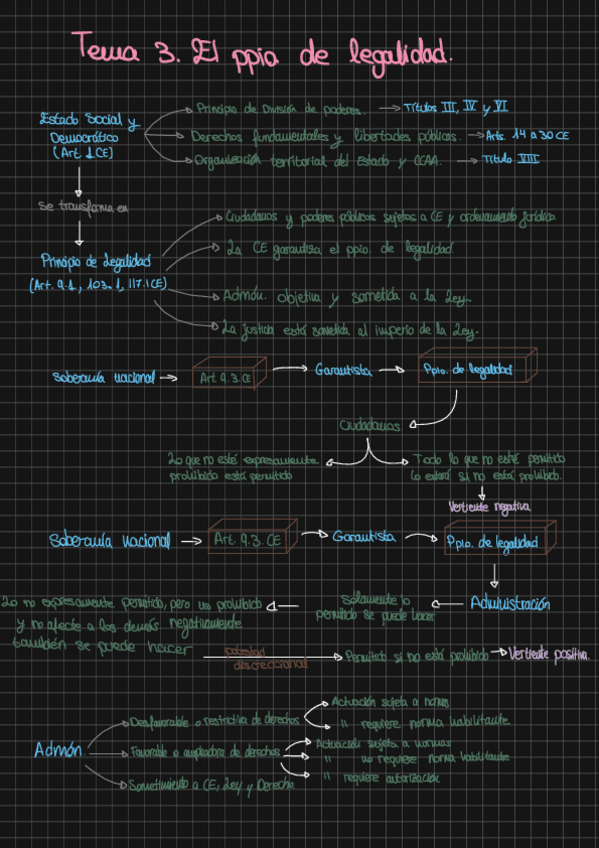 Tema 3. El ppio de legalidad.
Estado Social y
Democrático
(Art 1CE)
Principio de División de poderes. → Títulos III, IV y VI
Derechos fundamentales y libertades públicas. → Arts. 14 a 30 CE
Organización territorial del Estado y CCAA. → Título VIII
Se transforma en
Principio de Legalidad
(Art. 9.1, 103.1, 117.1CE)
Ciudadanos y poderes públicos sujetos a CE y ordenamiento jurídico.
La CE garantiza el ppio. de legalidad.
Admón. objetiva y sometida a la Ley.
La justicia está sometida al imperio de la Ley.
Soberanía nacional → Art 9.3.CE → Garantista → Ppio. de legalidad
Ciudadanos
Lo que no esté expresamente
prohibido está permitido
Todo lo que no esté permitido
lo estará si no está prohibido.
Vertiente negativa
Soberanía nacional → Art. 9.3. CE → Garantista → Ppio. de legalidad
Administración
Sólamente lo
permitido se puede hacer
Lo no expresamente permitido, pero no prohibido
y no afecte a los demás negativamente
también se puede hacer
potestad
discreccional
Permitido si no está prohibido → Vertiente positiva.
Admón.
Desfavorable o restrictiva de derechos
Actuación sujeta a normas
" requiere norma habilitante
Favorable o ampliadora de derechos
Actuación sujeta a normas
" no requiere norma habilitante
" requiere autorización
Sometimiento a CE, Ley y Derecho